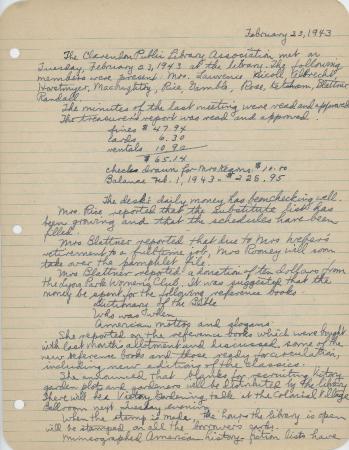 February 23, 1943
The Clarendon Public Library Association met on
Tuesday, February 23, 1943 at the library. The following
members were present: Mrs. Lawrence, Nicoll, Elbrecht,
Horstmyer, MacNaughtny, Rice, Gamble, Rose, Ketcham, Blattner
Randall.
The minutes of the last meeting were read and approved.
The treasurer's report was read and approved.
fines $47.94
cards 6.30
rentals 10.90
$65.14
checks drawn for Mrs Kearns $10.00
Balance Feb. 1, 1943 = $228.95
The desk's daily money has been checking well.
Mrs. Rice reported that the substitute list has
been growing and that the schedules have been
filled.
Mrs Blattner reported that due to Mrs
retirement to a full time job, Mrs Rooney will soon
take over the pamphlet file.
Mrs Blattner reported a donation of ten dollars from
the Lyon Park Women's Club. It was suggested that the
money be spent for the following reference books:
Dictionary of the Bible
Who was When
American mottos and slogans.
She reported on the reference books which were bought
with last month's allotment and discussed some of the
new reference books and those ready for circulation,
including new editions of the classics.
She announced that blanks for recruiting victory
garden plots and gardeners will be distributed by the library
There will be a Victory Gardening talk at the Colonial Village
Ballroom next Tuesday evening.
When the stamp is made, the hours the library is open
will be stamped on all the borrower's cards.
Mimeographed American history fiction lists have